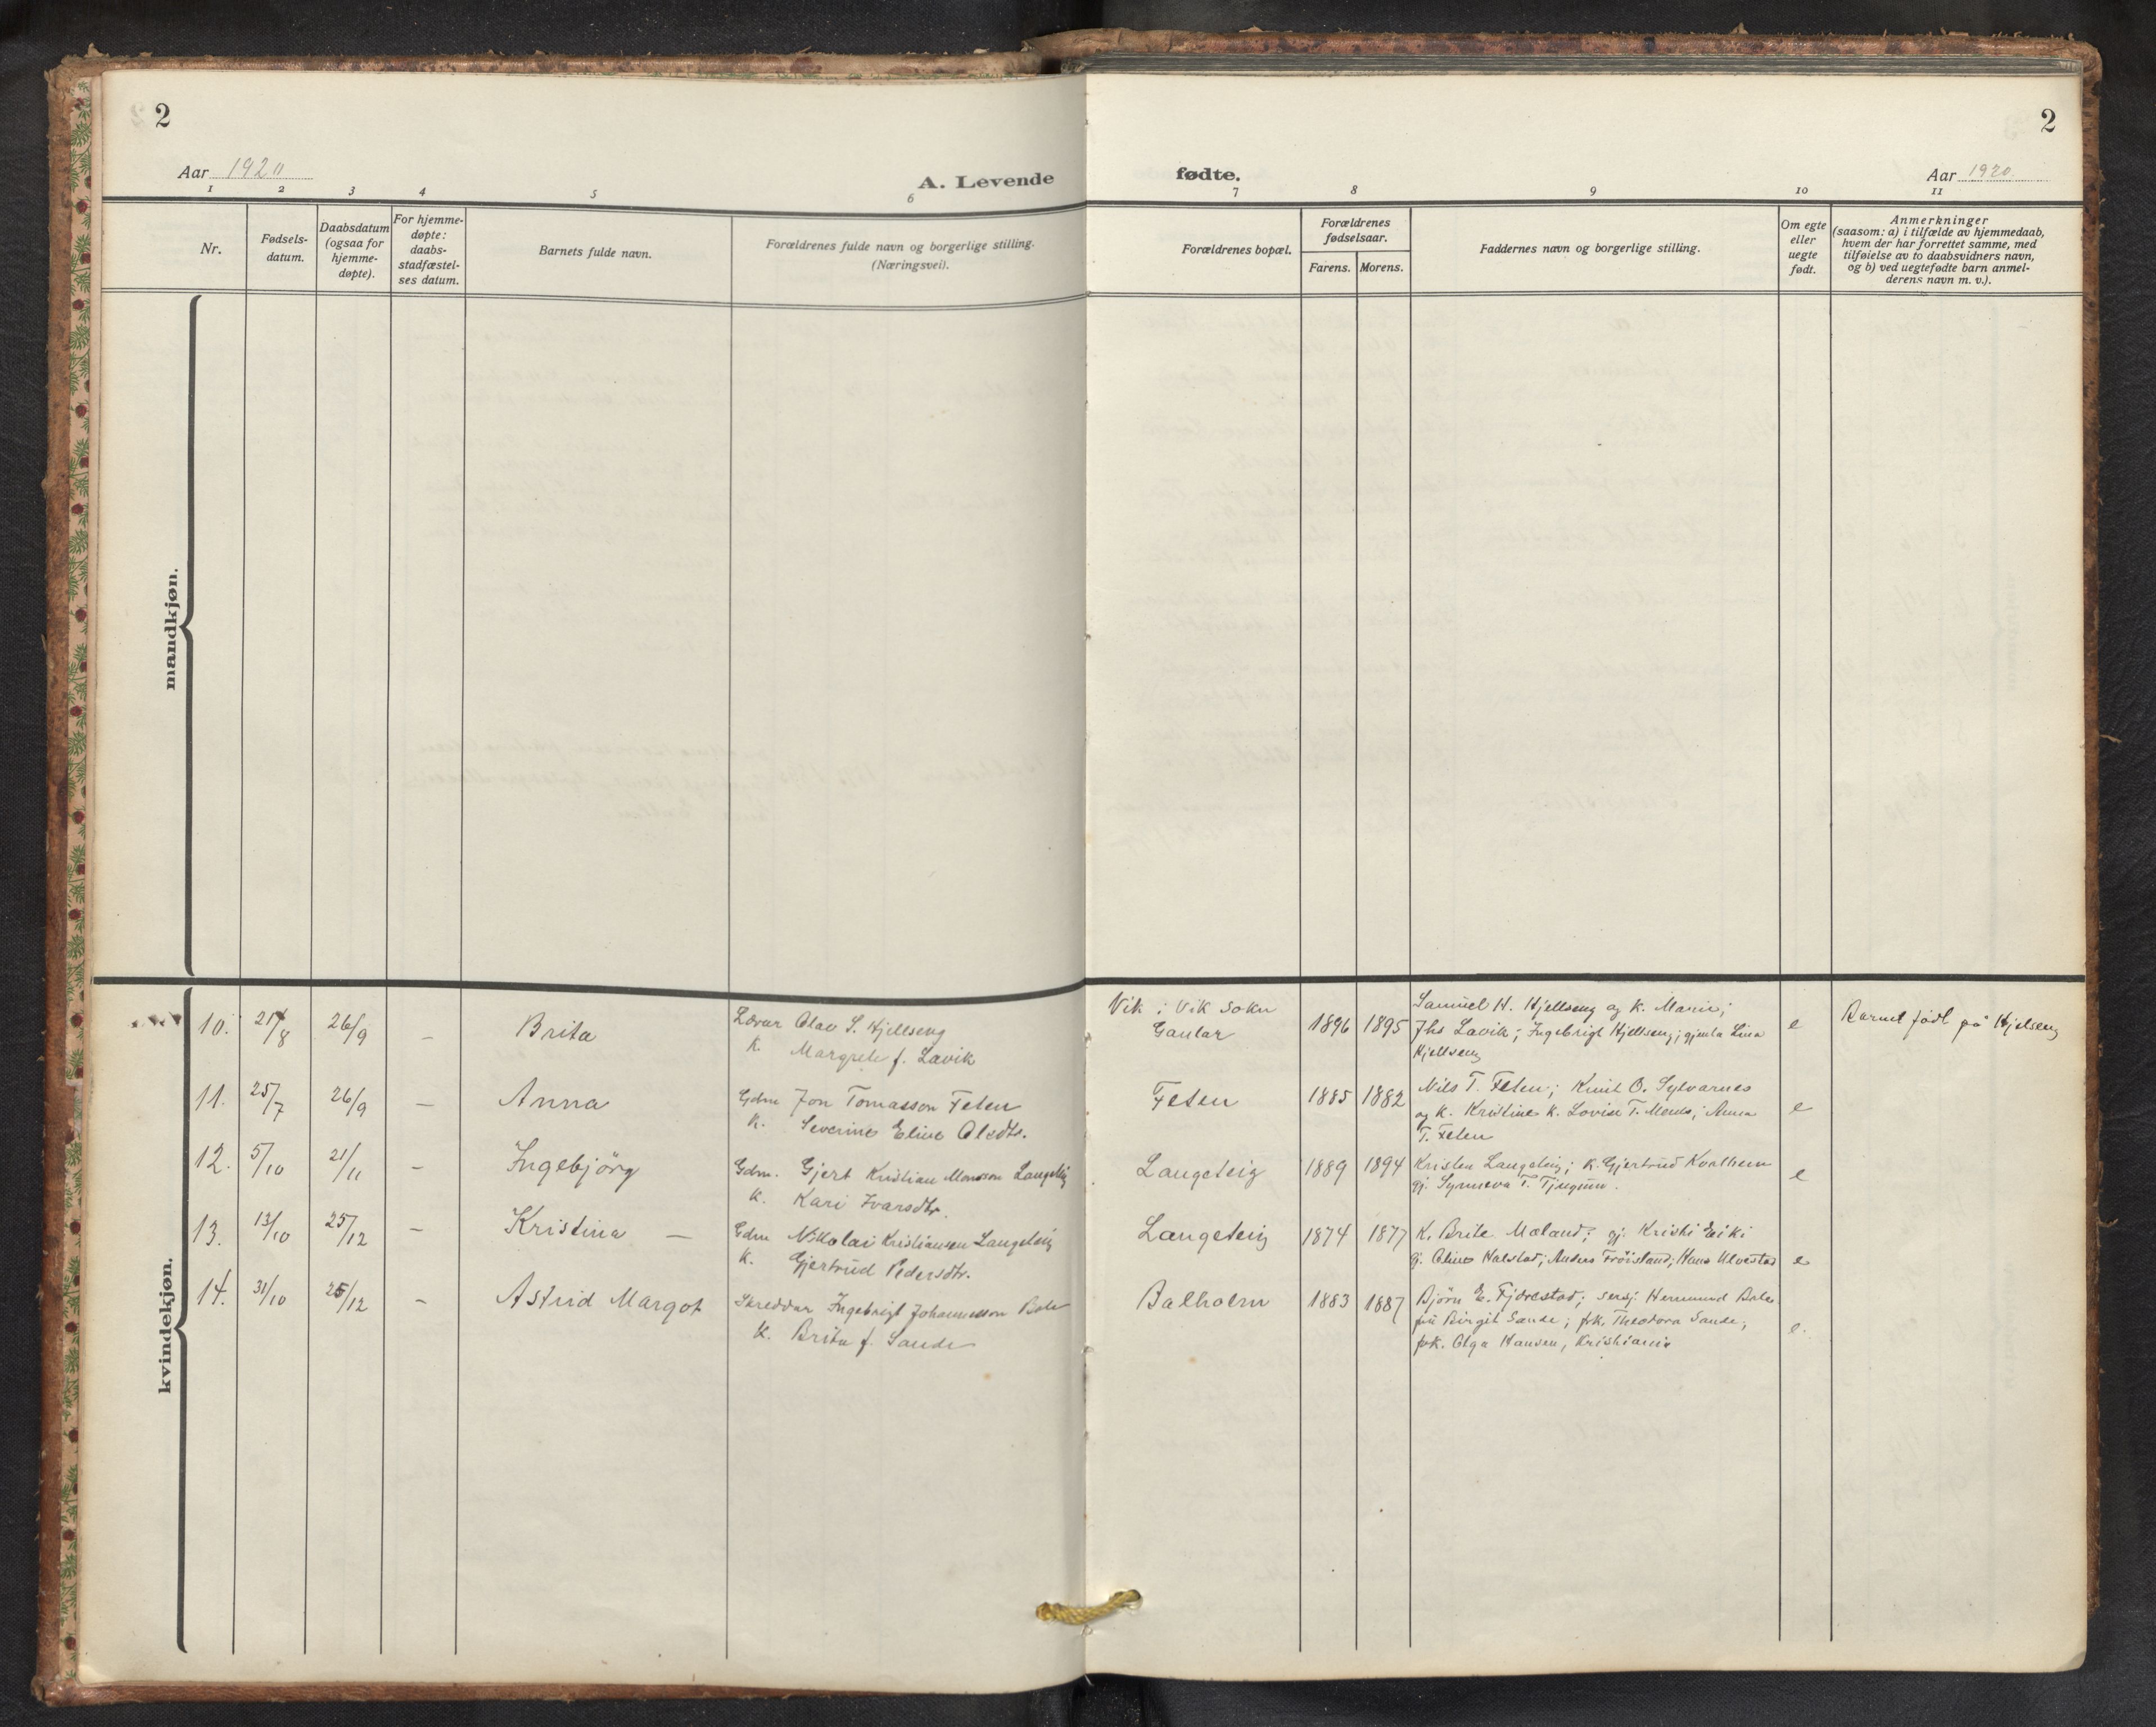 2
2
Aar 1920
A. Levende
fødte.
Aar 1920
1 2 3 4 5 6 7 8 9 10 11
Nr.
Fødsels-
datum.
Daabsdatum
(ogsaa for
hjemme-
døpte).
For hjemme-
døpte:
daabs-
stadfæstel-
ses datum.
Barnets fulde navn.
Forældrenes fulde navn og borgerlige stilling.
(Næringsvei).
Forældrenes bopæl.
Forældrenes
fødselsaar.
Farens. Morens.
Faddernes navn og borgerlige stilling.
Om egte
eller
uegte
født.
Anmerkninger
(saasom: a) i tilfælde av hjemmedaab,
hvem der har forrettet samme, med
tilføielse av to daabsvidners navn,
og b) ved uegtefødte barn anmel-
derens navn m. v.).
mandkjøn.
kvindekjøn.
10. 26/9 – Brita
Lærar Olav S. Hjellseng
K. Margrete f. Lavik
Vik i Vik sokn
Gaular
1896 1895
Samuel H. Hjellseng og K. Marie;
Jhs Lavik; Ingebrigt Hjellseng; gjenta Lina
Hjellseng
e
Barnet født på Hjelseng
11. 25/7 26/9 – Anna
Gdm Jon Tomasson Feten
K. Severine Eline Olsdtr.
Feten
1885 1882
Nils T. Feten; Knut O. Sylvarnes
og K. Kristine K. Lovise T. Menes; Anna
T. Feten
e
12. 5/10 21/11 – Ingebjörg
Gdm. Gjert Kristian Monsson Langeteig
K. Kari Ivarsdtr.
Langeteig
1889 1894
Kristen Langeteig; K. Gjertrud Kvalheim
gj. Synneva T. Tjugum.
e
13. 13/10 25/12 – Kristina –
Gdm Nikolai Kristiansen Langeteig
K. Gjertrud Pedersdtr.
Langeteig
1874 1877
K. Brite Mæland; gj. Kristi Eiki
gj. Oline Halstad; Anders Fröistand; Hans Ulvestad
e
14. 31/10 25/12 – Astrid Margot
Skreddar Ingebrigt Johannesson Bale
K. Brita f. Sande
Balholm
1883 1887
Bjørn E. Fjærestad; sersj. Hermund Bale
frü Birgit Sande; frk. Theodora Sande;
frk. Olga Hansen, Kristiania
e.